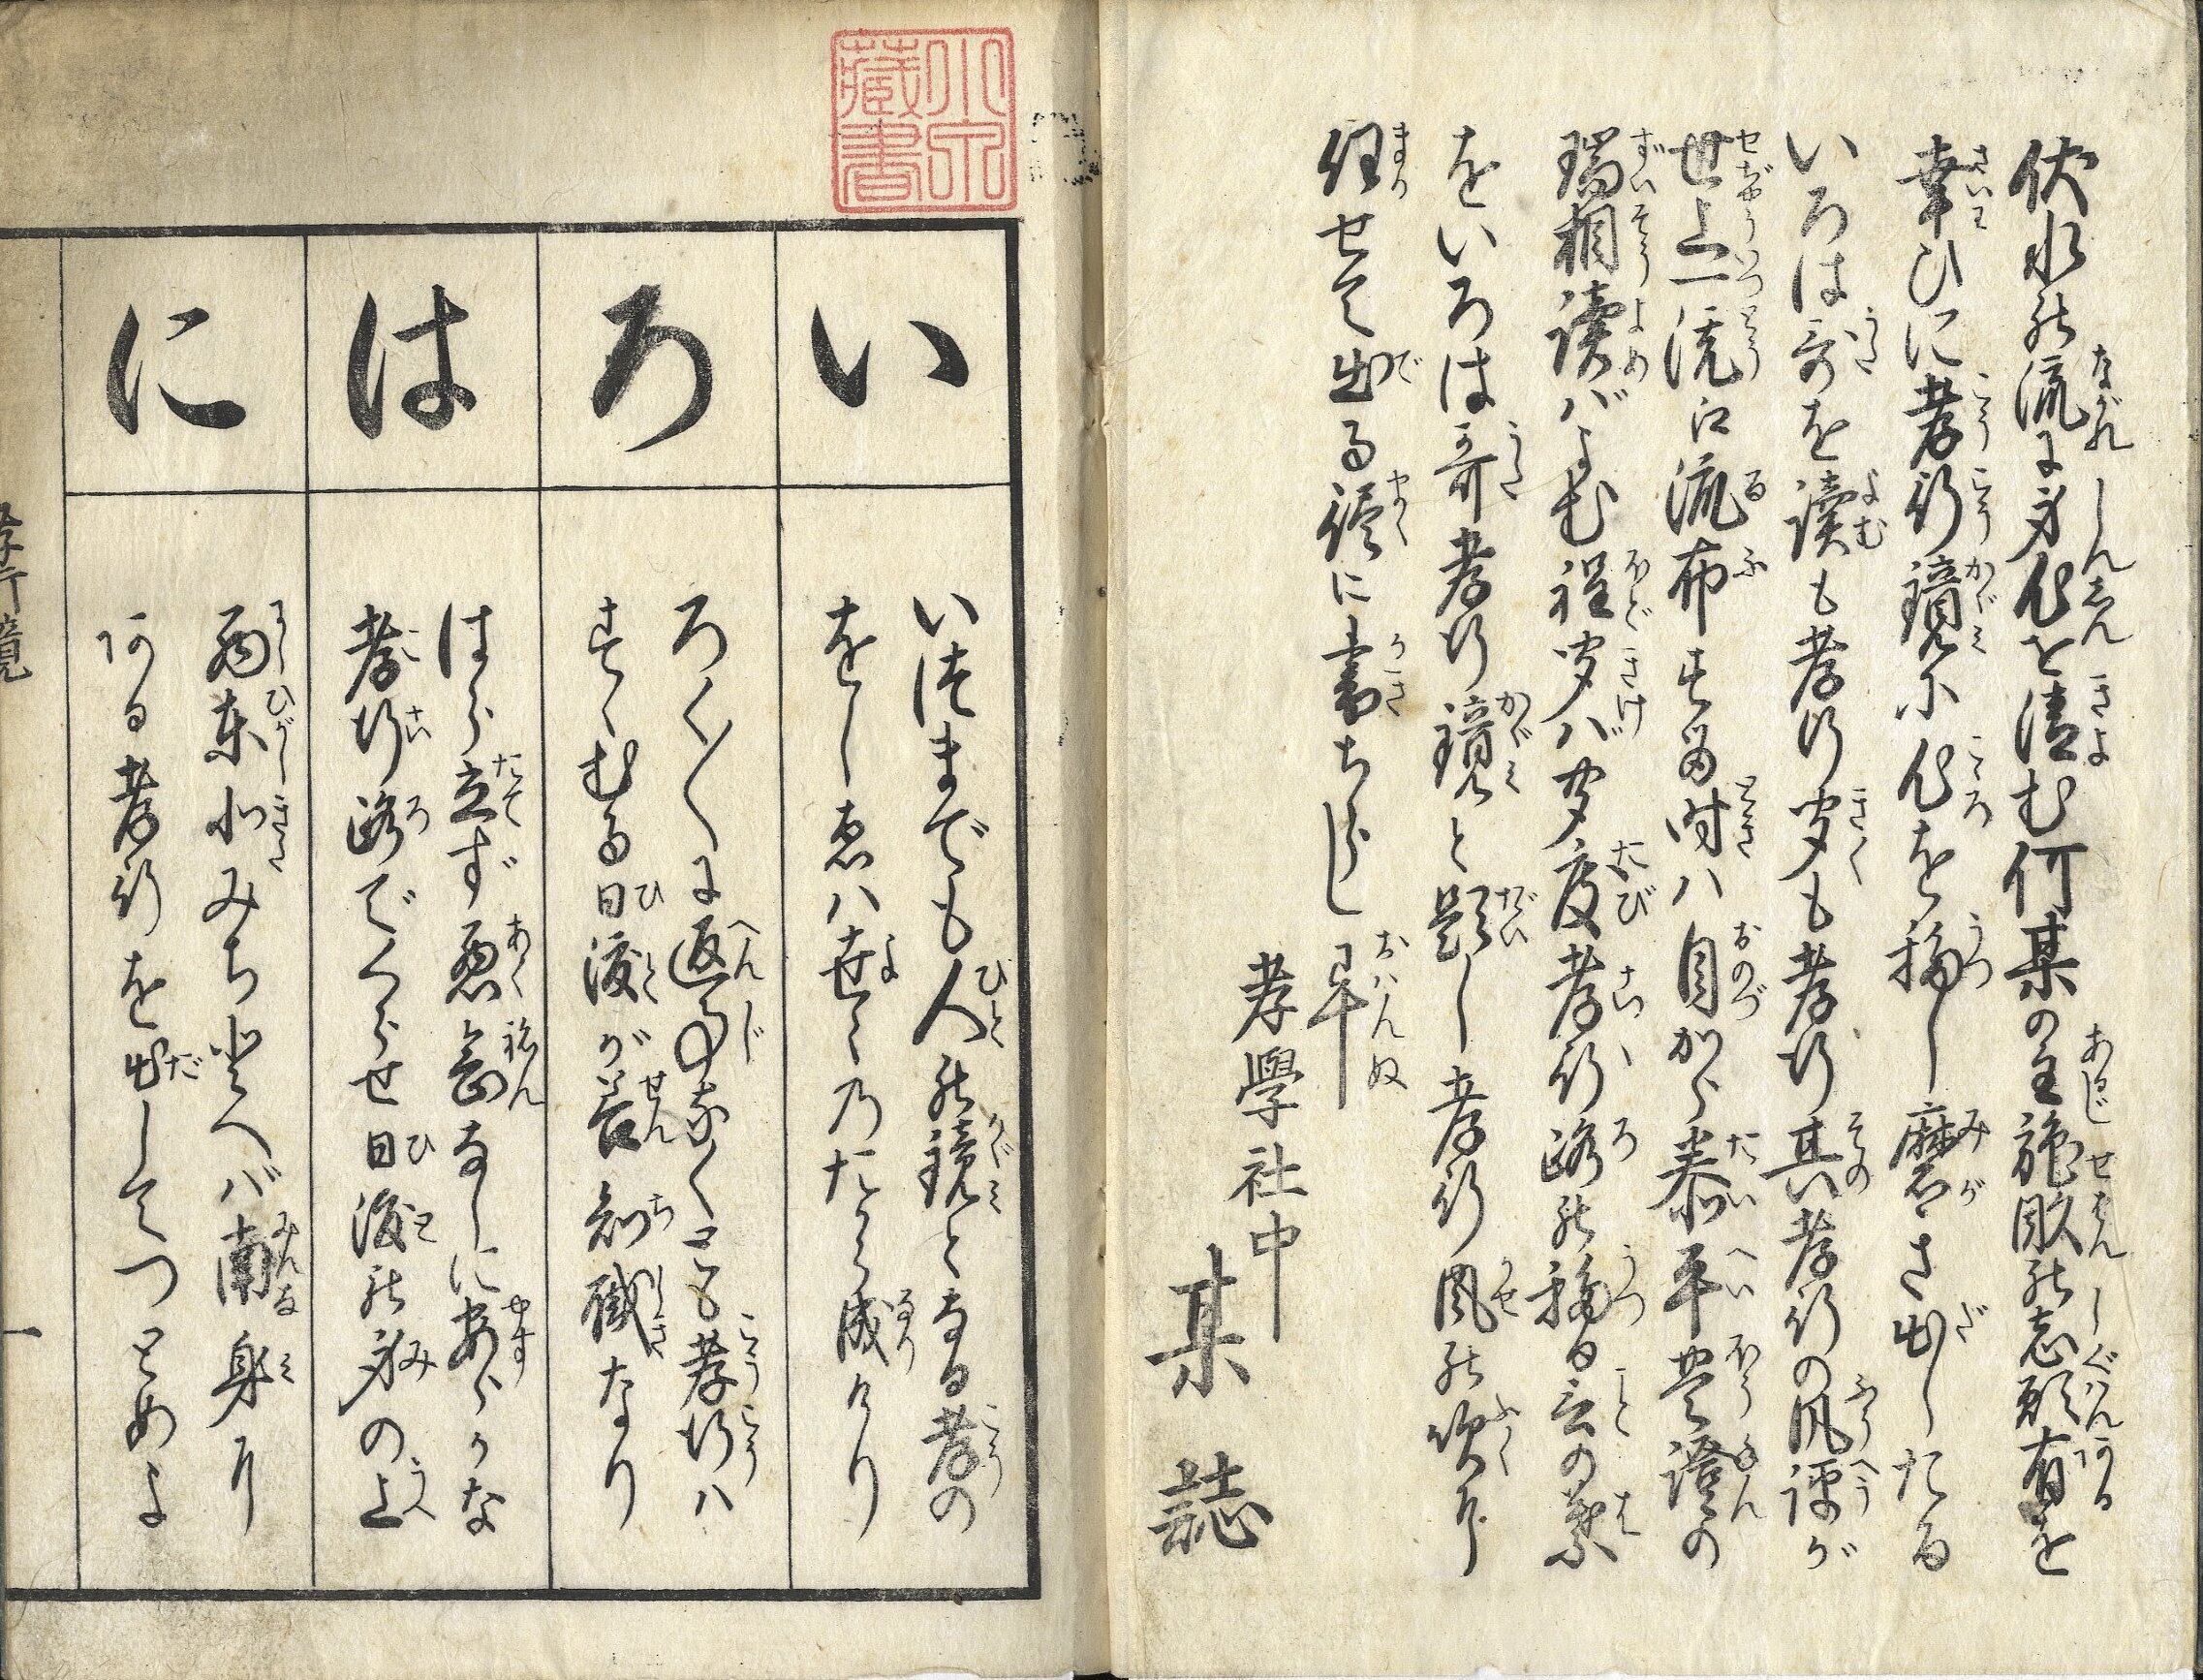 伏水の流に身心を清む何某の主施聴の志願有を
幸ひに孝行鏡に心を移し磨き出したる
いろは哥を読も孝行聞も孝行其孝行の風評が
世上一統に流布する時ハ自から泰平豊澄の
瑞相読バよむ程聞バ聞度孝行路の移る言の葉
をいろは哥孝行鏡と題し孝行風の吹に
任せて出る侭に書ちらし畢
孝學社中
某誌
小泉藏書
い
いつまでも人の鏡となる孝の
をしゑハ世々のたから成けり
ろ
ろく／＼に返事なくとも孝行ハ
すゝむる日渡が善知職なり
は
はら立ず悪念なしに安らかな
孝行路でくらせ日渡の身の上
に
西東北みちとへバ南身に
ある孝行を出してつとめよ
孝行鏡
一